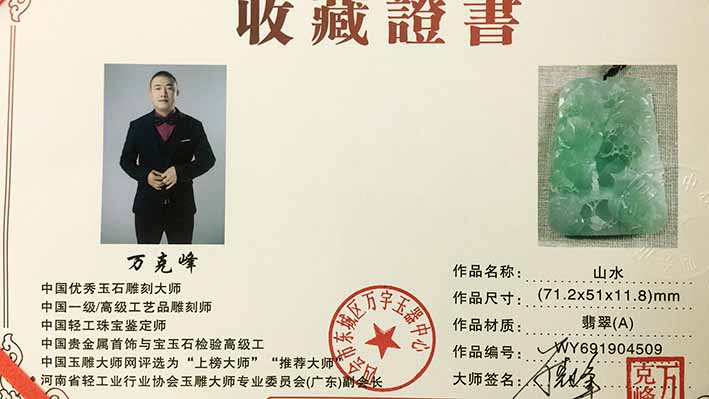 收藏證書
万克峰
中国优秀玉石雕刻大师
中国一级/高级工艺品雕刻师
中国轻工珠宝鉴定师
中国贵金属首饰与宝玉石检验高级工
中国玉雕大师网评选为“上榜大师”“推荐大师”
河南省轻工业行业协会玉雕大师专业委员会(广东)副会长
四会市东城区万字玉器中心
作品名称: 山水
作品尺寸: (71.2x51x11.8)mm
作品材质: 翡翠(A)
作品编号: WY691904509
大师签名:
万克峰